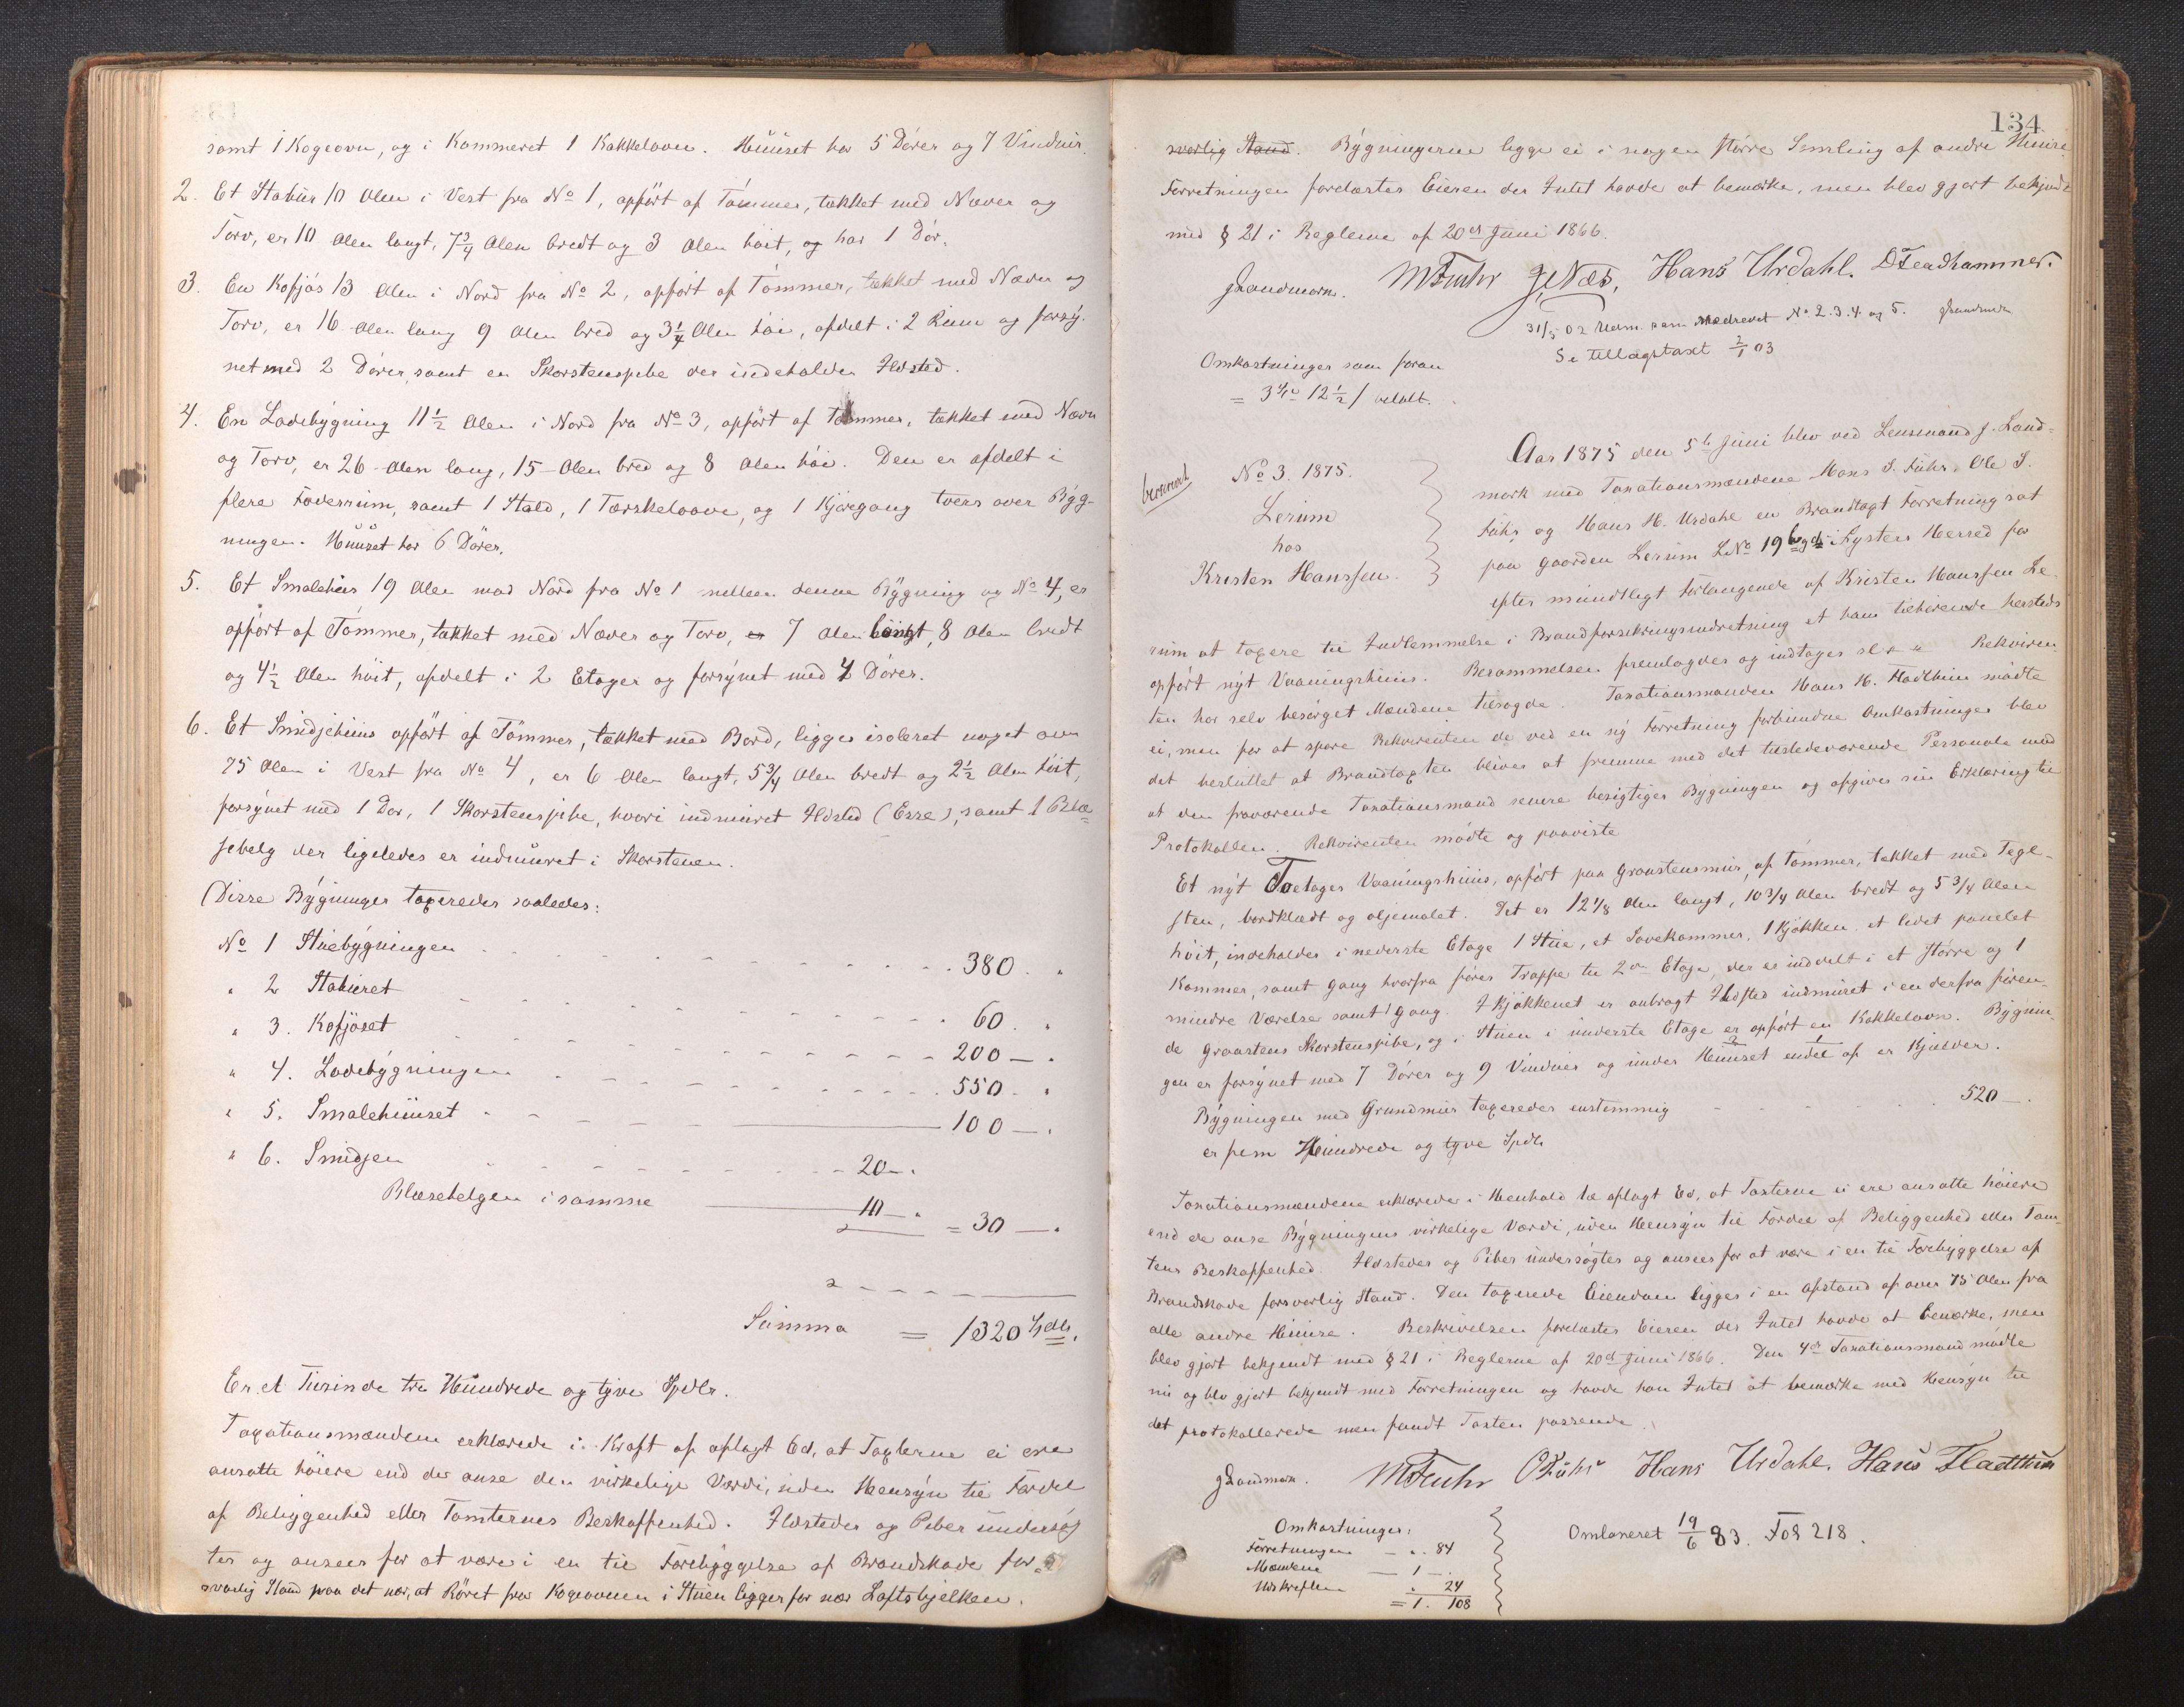 samt 1 Kogeovn, og i Kammeret 1 Kakkelovn. Huuset har 5 Dører og 7 Vinduer.
2. Et Stabur 10 Alen i Vest fra No 1, opført af Tømmer, tækket med Næver og
Torv, er 10 Alen langt, 7¾ Alen bredt og 3 Alen høit, og har 1 Dør.
3. En Kofjøs 13 Alen i Nord fra No 2, opført af Tømmer, tækket med Næver og
Torv, er 16 Alen lang 9 Alen bred og 3¼ Alen høi, afdelt i 2 Rum og forsy-
net med 2 Dører, samt en Skorstenspibe der indeholder Ildsted.
4. En Ladebygning 11½ Alen i Nord fra No 3, opført af Tømmer, tækket med Næver
og Torv, er 26 Alen lang, 15 Alen bred og 8 Alen høi. Den er afdelt i
flere Foderrum, samt 1 Stald, 1 Tærskeloove, og 1 Kjøregang tvers over Byg-
ningen. Huuset har 6 Dører.
5. Et Smalehus 19 Alen mod Nord fra No 1 mellem denne Bygning og No 4, er
opført af Tømmer, tækket med Næver og Torv, er 7 Alen langt, 8 Alen bredt
og 4½ Alen høit, afdelt i 2 Etager og forsynet med 4 Dører.
6. Et Smidjehuus opført af Tømmer, tækket med Bord, ligger isoleret noget over
75 Alen i Vest fra No 4, er 6 Alen langt, 5¾ Alen bredt og 2½ Alen høit,
forsynet med 1 Dør, 1 Skorstenspibe, hvori indmuret Ildsted (Esse), samt 1 Blæ-
sebelg der ligeledes er indmuret i Skorstenen.
Disse Bygninger taxeredes saaledes:
No 1 Stuebygningen 380 . "
" 2 Staburet 60 . "
" 3. Kofjøset 200 — "
" 4. Ladebygningen 550 . "
" 5. Smalehuuset 100 — "
" 6. Smidjen 20 — "
Blæsebelgen i samme 10 — " = 30 — "
Summa = 1320 Spdlr.
Er et Tusinde tre Hundrede og tyve Spdlr.
Taxationsmændene erklærede i Kraft af aflagt Ed, at Taxterne ei ere
ansatte høiere end de anse den virkelige Værdi, uden Hensyn til Fordel
af Beliggenhed eller Tomternes Beskaffenhed. Ildsteder og Piber undersøg-
tes og ansees for at være i en til Forebyggelse af Brandskade for-
svarlig Stand paa det nær, at Røret fra Kogeovnen i Stuen ligger for nær Loftsbjelken.
134
svarlig Stand. Bygningerne ligge ei i nogen større Samling af andre Huuse.
Forretningen forelæstes Eieren der Intet havde at bemærke, men blev gjort bekjendt
med § 21 i Reglerne af 20de Juni 1866.
JLandmark. MSFuhr JNæs, Hans Urdahl. DFeadhammer.
31/5 02 Udm. som nedrevet No 2.3.4. og 5. JLandmark
Se tillægstaxt 2/1 03
Omkostninger som foran
= 3 Spd 12½ / betalt.
No 3. 1875.
Lerum
hos
Kristen Hanssen.
Aar 1875 den 5te Juni blev ved Lensmand J. Land-
mark med Taxationsmændene Mons S. Fuhr, Ole S.
Fuhr og Hans H. Urdahl en Brandtaxt Forretning sat
paa Gaarden Lerum LNo 19 b i Lysters Herred for
efter mundtligt Forlangende af Kristen Hanssen Le-
rum at taxere til Indlemmelse i Brandforsikringsindretning et ham tilhørende hersteds
opført nyt Vaaningshuus. Berammelsen fremlagdes og indtages Rekviren-
ten har selv besørget Mændene tilsagde. Taxationsmanden Hans H. Fladthun mødte
ei, men for at spare Rekvirenten de ved en ny Forretning forbundne Omkostninger blev
det besluttet at Brandtaxten bliver at fremme med det tilstedeværende Personale med
at den fraværende Taxationsmand senere besigtiger Bygningen og afgiver sin Erklæring til
Protokollen. Rekvirenten mødte og paaviste
Et nyt Toetages Vaaningshuus, opført paa Graastensmur, af Tømmer, tækket med Tegl-
sten, bordklædt og oljemalet. Det er 12⅛ Alen langt, 10¾ Alen bredt og 5¾ Alen
høit, indeholder i nederste Etage 1 Stue, et Sovekammer, 1 Kjøkken, et lidet panelet
Kammer, samt Gang hvorfra fører Trappe til 2den Etage, der er inddelt i et større og 1
mindre Værelse samt 1 Gang. I Kjøkkenet er anbragt Ildsted indmuret i en derfra føren-
de Graastens Skorstenspibe, og i Stuen i underste Etage er opført en Kakkelovn. Bygnin-
gen er forsynet med 7 Dører og 9 Vinduer og under Huuset endel af er Kjælder.
Bygningen med Grundmur taxeredes enstemmig 520 — .
er fem Hundrede og tyve Spdlr
Taxationsmændene erklærede i Henhold til aflagt Ed, at Taxterne ei ere ansatte høiere
end de anse Bygningens virkelige Værdi, uden Hensyn til Fordel af Beliggenhed eller Tom-
tens Beskaffenhed. Ildsteder og Piber undersøgtes og ansees for at være i en til Forebyggelse af
Brandskade forsvarlig Stand. Den taxerede Eiendom ligger i en Afstand af over 75 Alen fra
alle andre Huuse. Beskrivelsen forelæstes Eieren der Intet havde at bemærke, men
blev gjort bekjendt med § 21 i Reglerne af 20de Juni 1866. Den 4de Taxationsmand mødte
nu og blev gjort bekjendt med Forretningen og havde han Intet at bemærke med Hensyn til
det protokollerede men fandt Taxten passende.
JLandmark. MSFuhr OSFuhr Hans Urdahl. Hans Fladthun
Omkostninger:
Forretningen — " 84
Mændene — 1 — "
Udskriften " 24
= 1. 108
Omtaxeret 19/6 83. Fol 218.